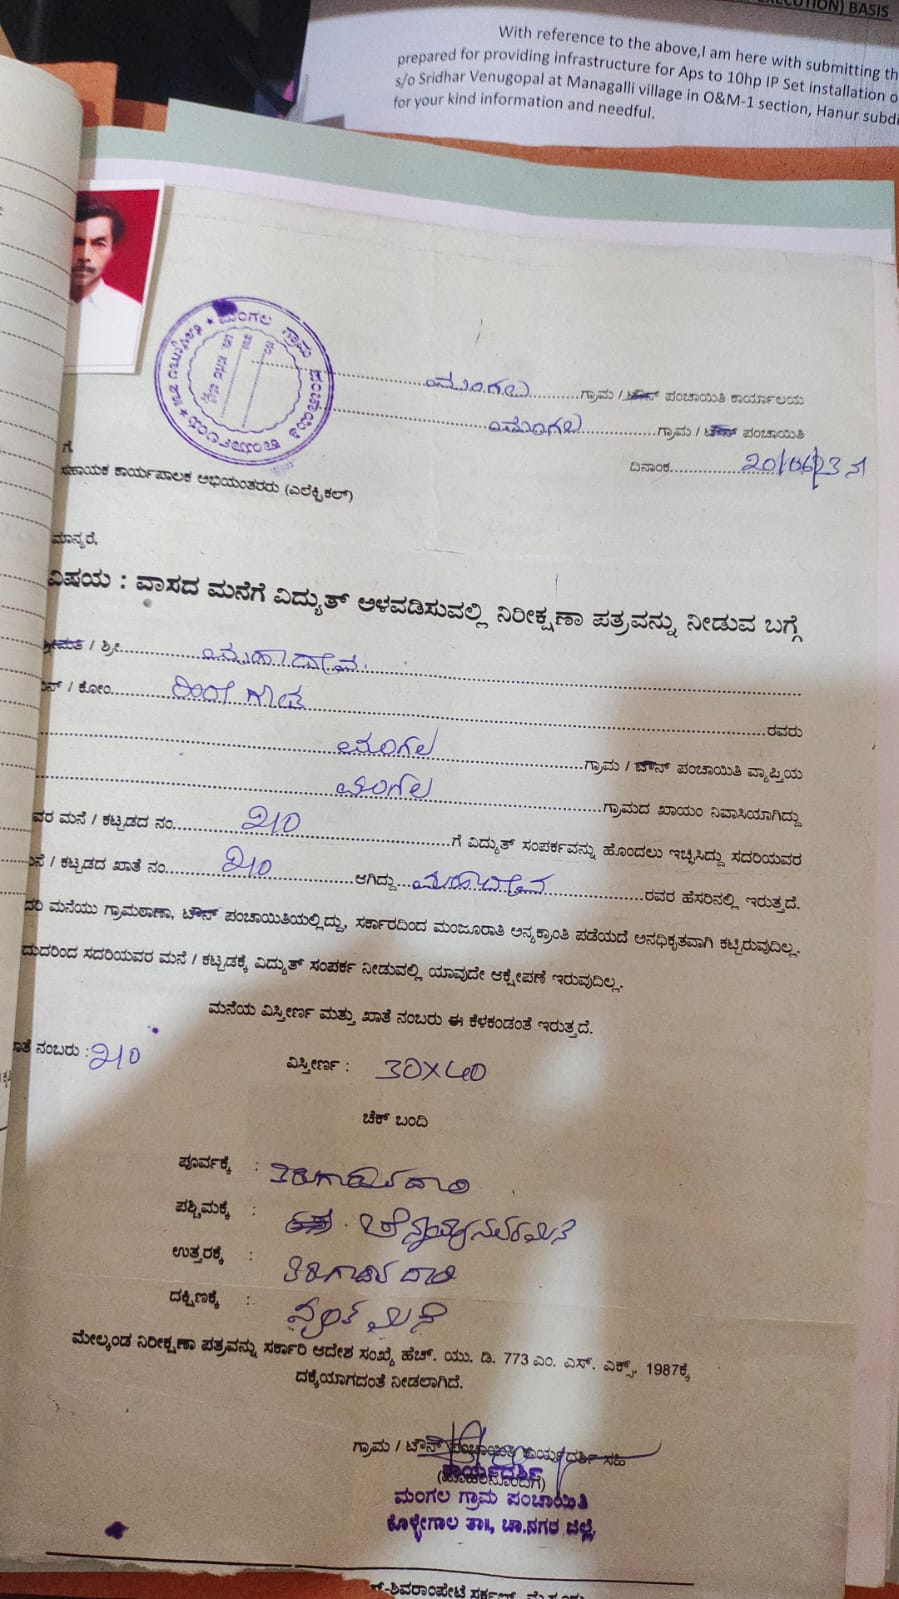 EXECUTION) BASIS
With reference to the above,I am here with submitting th
prepared for providing infrastructure for Aps to 10hp IP Set installation o
s/o Sridhar Venugopal at Managalli village in O&M-1 section, Hanur subdi
for your kind information and needful.
ಮಂಗಲ ಗ್ರಾಮ ಪಂಚಾಯಿತಿ ಕಾರ್ಯಾಲಯ
ಮಂಗಲ ಗ್ರಾಮ / ಟೌನ್ ಪಂಚಾಯಿತಿ ಕಾರ್ಯಾಲಯ
ಮಂಗಲ ಗ್ರಾಮ / ಟೌನ್ ಪಂಚಾಯಿತಿ
ದಿನಾಂಕ 20/06/23 ನ
ಗೆ
ಸಹಾಯಕ ಕಾರ್ಯಪಾಲಕ ಅಭಿಯಂತರರು (ಎಲೆಕ್ಟ್ರಿಕಲ್)
ಮಾನ್ಯರೆ,
ವಿಷಯ : ವಾಸದ ಮನೆಗೆ ವಿದ್ಯುತ್ ಅಳವಡಿಸುವಲ್ಲಿ ನಿರೀಕ್ಷಣಾ ಪತ್ರವನ್ನು ನೀಡುವ ಬಗ್ಗೆ
ಶ್ರೀಮತಿ / ಶ್ರೀ ಮಹಾದೇವ
ಬಿನ್ / ಕೋಂ ರವರು
ಮಂಗಲ ಗ್ರಾಮ / ಟೌನ್ ಪಂಚಾಯಿತಿ ವ್ಯಾಪ್ತಿಯ
ಮಂಗಲ ಗ್ರಾಮದ ಖಾಯಂ ನಿವಾಸಿಯಾಗಿದ್ದು
ವರ ಮನೆ / ಕಟ್ಟಡದ ನಂ 210 ಗೆ ವಿದ್ಯುತ್ ಸಂಪರ್ಕವನ್ನು ಹೊಂದಲು ಇಚ್ಚಿಸಿದ್ದು ಸದರಿಯವರ
ನೆ / ಕಟ್ಟಡದ ಖಾತೆ ನಂ 210 ಆಗಿದ್ದು ಮಹಾದೇವ ರವರ ಹೆಸರಿನಲ್ಲಿ ಇರುತ್ತದೆ.
ದರಿ ಮನೆಯು ಗ್ರಾಮಠಾಣಾ, ಟೌನ್ ಪಂಚಾಯಿತಿಯಲ್ಲಿದ್ದು, ಸರ್ಕಾರದಿಂದ ಮಂಜೂರಾತಿ ಅನ್ಯಕ್ರಾಂತಿ ಪಡೆಯದೆ ಅನಧಿಕೃತವಾಗಿ ಕಟ್ಟಿರುವುದಿಲ್ಲ.
ದುದರಿಂದ ಸದರಿಯವರ ಮನೆ / ಕಟ್ಟಡಕ್ಕೆ ವಿದ್ಯುತ್ ಸಂಪರ್ಕ ನೀಡುವಲ್ಲಿ ಯಾವುದೇ ಆಕ್ಷೇಪಣೆ ಇರುವುದಿಲ್ಲ.
ಮನೆಯ ವಿಸ್ತೀರ್ಣ ಮತ್ತು ಖಾತೆ ನಂಬರು ಈ ಕೆಳಕಂಡಂತೆ ಇರುತ್ತದೆ.
ಾತೆ ನಂಬರು : 210
ವಿಸ್ತೀರ್ಣ : 30×40
ಚೆಕ್ ಬಂದಿ
ಪೂರ್ವಕ್ಕೆ : ತಿರುಗಾಡುವ ದಾರಿ
ಪಶ್ಚಿಮಕ್ಕೆ :
ಉತ್ತರಕ್ಕೆ : ತಿರುಗಾಡುವ ದಾರಿ
ದಕ್ಷಿಣಕ್ಕೆ :
ಮೇಲ್ಕಂಡ ನಿರೀಕ್ಷಣಾ ಪತ್ರವನ್ನು ಸರ್ಕಾರಿ ಆದೇಶ ಸಂಖ್ಯೆ ಹೆಚ್. ಯು. ಡಿ. 773 ಎಂ. ಎಸ್. ಎಕ್ಸ್. 1987ಕ್ಕೆ
ದಕ್ಕೆಯಾಗದಂತೆ ನೀಡಲಾಗಿದೆ.
ಗ್ರಾಮ / ಟೌನ್ ಪಂಚಾಯಿತಿ ಕಾರ್ಯದರ್ಶಿ ಸಹಿ
(ಮೊಹರಿನೊಂದಿಗೆ)
ಕಾರ್ಯದರ್ಶಿ
ಮಂಗಲ ಗ್ರಾಮ ಪಂಚಾಯಿತಿ
ಕೊಳ್ಳೇಗಾಲ ತಾ||, ಚಾ.ನಗರ ಜಿಲ್ಲೆ.